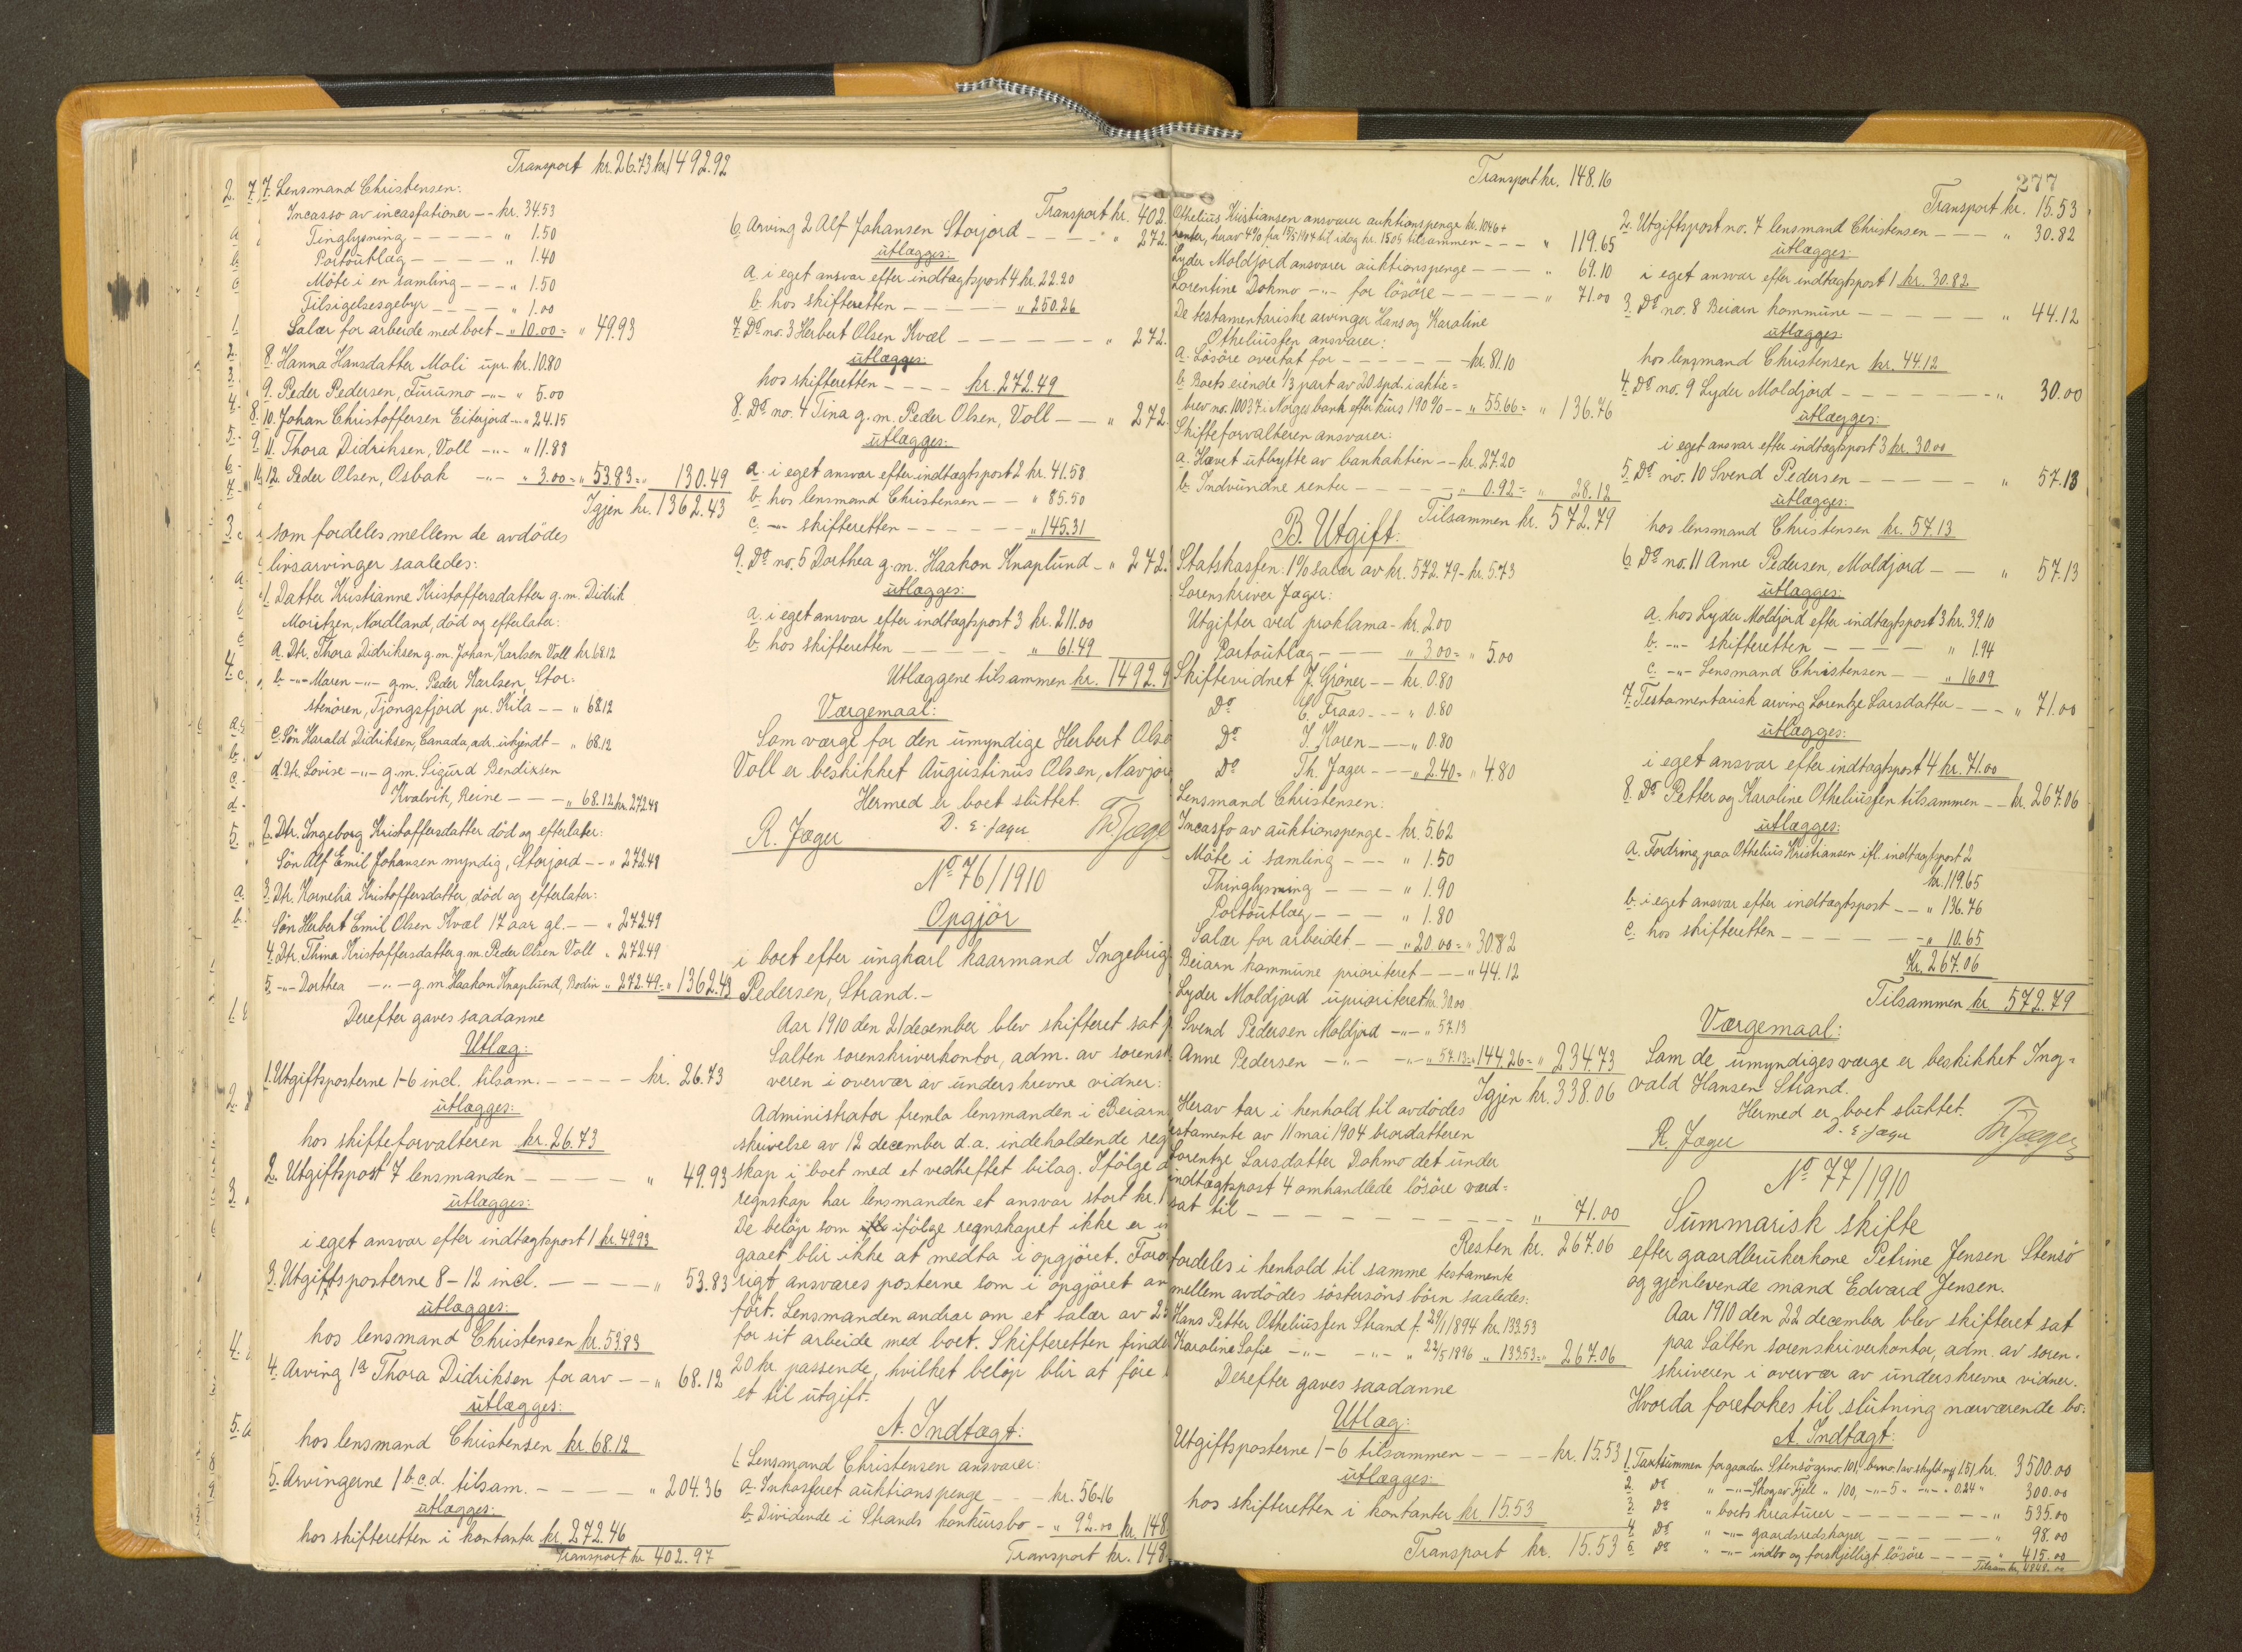 Transport kr. 26.73 kr. 1492.92
7. Lensmand Christensen:
Incasso av incassationer -- kr. 34.53
Tinglysning - - - - - " 1.50
Portoutlæg - - - - " 1.40
Möte i en samling - - - " 1.50
Tilsigelsesgebyr - - - - " 1.00
Salær for arbeide med boet - " 10.00 = " 49.93
8. Hanna Hansdatter Moli upr. kr. 10.80
9. Peder Pedersen, Furumo -"- " 5.00
10. Johan Christoffersen Eiterjord -"- 24.15
11. Thora Didriksen, Voll -"- " 11.88
12. Peder Olsen, Osbak -"- " 3.00 = " 53.83 = " 130.49
Igjen kr. 1362.43
som fordeles mellem de avdödes
livsarvinger saaledes:
1. Datter Kristianne Kristoffersdatter g.m. Didrik
Moritzen, Nordland, död og efterlater:
a. Dtr. Thora Didriksen g.m. Johan Karlsen Voll kr. 68.12
b. -"- Maren -"- g.m. Peder Karlsen, Stor-
stenören, Tjongsfjord pr. Kila -- " 68.12
c. Sön Harald Didriksen, Canada, adr. ukjendt - " 68.12
d. Dtr. Lovise -"- g.m. Sigurd Bendixsen
Kvalvik, Reine - - - " 68.12 kr. 272.48
2. Dtr. Ingeborg Kristoffersdatter död og efterlater:
Sön Alf Emil Johansen myndig, Storjord -- " 272.48
3. Dtr. Kornelia Kristoffersdatter, död og efterlater:
Sön Herbert Emil Olsen Kvæl 17 aar gl. -- " 272.49
4. Dtr. Thina Kristoffersdatter g.m. Peder Olsen Voll " 272.49
5. -"- Dorthea -"- g.m. Haakon Knaplund, Bodin " 272.49 = " 1362.43
Derefter gaves saadanne
Utlæg:
1. Utgiftsposterne 1-6 incl. tilsam. - - - - - kr. 26.73
utlægges:
hos skifteforvalteren kr. 26.73
2. Utgiftspost 7 lensmanden - - - - - " 49.93
utlægges:
i eget ansvar efter indtægtspost 1 kr. 49.93
3. Utgiftsposterne 8-12 incl. - - - - - " 53.83
utlægges:
hos lensmand Christensen kr. 53.83
4. Arving 1a Thora Didriksen for arv -- " 68.12
utlægges:
hos lensmand Christensen kr 68.12
5. Arvingerne 1 b.c.d. tilsam. - - - - - " 204.36
utlægges:
hos skifteretten i kontanter kr. 272.46
Transport kr 402.97
Transport kr. 402.
6. Arving 2 Alf Johansen Storjord - - - - " 272.
utlægges:
a. i eget ansvar efter indtægtspost 4 kr. 22.20
b. hos skifteretten - - - - - " 250.26
7. Do no. 3 Herbert Olsen Kvæl - - - - - - " 272.
utlægges:
hos skifteretten - - - - kr. 272.49
8. Do no. 4 Tina g.m. Peder Olsen, Voll - - " 272.
utlægges:
a. i eget ansvar efter indtægtspost 2 kr. 41.58
b. hos lensmand Christensen - - " 85.50
c. -"- skifteretten - - - - - - " 145.31
9. Do no. 5 Dorthea g.m. Haakon Knaplund - " 272.
utlægges:
a. i eget ansvar efter indtægtspost 3 kr. 211.00
b. hos skifteretten - - - - - " 61.49
Utlæggene tilsammen kr. 1492.9
Værgemaal:
Som værge for den umyndige Herbert Olse
Voll er beskikket Augustinus Olsen, Navjor
Hermed er boet sluttet.
R. Jæger D. E. Jæger Th Jæge
No 76/1910
Opgjör
i boet efter ungkarl kaarmand Ingebrig
Pedersen, Strand.-
Aar 1910 den 21 december blev skifteret sat p
Salten sorenskriverkontor, adm. av sorensk
veren i overvær av underskrevne vidner:
Administrator fremla lensmanden i Beiarn
skrivelse av 12 december d.a. indeholdende reg
skap i boet med et vedheftet bilag. Ifölge d
regnskap har lensmanden et ansvar stort kr. 1
De belöp som ifölge regnskapet ikke er in
gaaet blir ikke at medta i opgjöret. Forö
rigt ansvares posterne som i opgjöret an
fört. Lensmanden andrar om et salær av 25
for sit arbeide med boet. Skifteretten finde
20 kr. passende, hvilket belöp blir at före
et til utgift.
A. Indtægt:
1. Lensmand Christensen ansvarer:
a. Inkasseret auktionspenge - - - kr. 56.16
b. Dividende i Strands konkursbo - " 92.00 kr. 148
Transport kr. 148
Transport kr. 148.16
Othelius Kristiansen ansvarer auktionspenge kr. 104.6 +
renter, herav 4% fra 19/5 1904 til idag kr. 15.05 tilsammen - - - " 119.65
Lyder Moldjord ansvarer auktionspenge - - - " 69.10
Lorentine Dokmo -"- for lösöre - - - - - " 71.00
De testamentariske arvinger Hans og Karoline
Otheliussen ansvarer:
a. Lösöre overtat for - - - - - - - kr. 81.10
b. Boets eiende 1/3 part av 20 spd. i aktie-
brev no. 10037 i Norges bank efter kurs 190% -- " 55.66 = " 136.76
Skifteforvalteren ansvarer:
a. Hævet utbytte av bankaktien -- kr. 27.20
b. Indvundne renter - - - - - " 0.92 = " 28.12
Tilsammen kr. 572.79
B. Utgift:
Statskassen: 1% salær av kr. 572.79 - kr. 5.73
Sorenskriver Jæger:
Utgifter ved proklama - kr. 2.00
Portoutlæg - - - " 3.00 = " 5.00
Skiftevidnet J. Gröner -- kr. 0.80
Do E. Fraas - - - " 0.80
Do J. Koren - - - " 0.80
Do Th. Jæger - - - " 2.40 = " 4.80
Lensmand Christensen:
Incasso av auktionspenge - kr. 5.62
Möte i samling - - - " 1.50
Thinglysning - - - " 1.90
Portoutlæg - - - " 1.80
Salær for arbeidet - - " 20.00 = " 30.82
Beiarn kommune prioriteret - - - " 44.12
Lyder Moldjord uprioriteret kr. 30.00
Svend Pedersen Moldjord -"- " 57.13
Anne Pedersen -"- -"- " 57.13 = " 144.26 = " 234.73
Igjen kr. 338.06
Herav tar i henhold til avdödes
estamente av 11 mai 1904 brordatteren
Lorentze Larsdatter Dokmo det under
indtægtspost 4 omhandlede lösöre værd-
sat til - - - - - - - - - - " 71.00
Resten kr. 267.06
fordeles i henhold til samme testamente
mellem avdödes söstersöns börn saaledes:
Hans Petter Otheliussen Strand f. 29/1 1894 kr. 133.53
Karoline Sofie -"- -"- " 22/5 1896 " 133.53 = " 267.06
Derefter gaves saadanne
Utlæg:
Utgiftsposterne 1-6 tilsammen - - - kr. 15.53
utlægges:
hos skifteretten i kontanter kr. 15.53
Transport kr. 15.53
277
Transport kr. 15.53
2. Utgiftspost no. 7 lensmand Christensen - - - " 30.82
utlægges:
i eget ansvar efter indtægtspost 1 kr. 30.82
3. Do no. 8 Beiarn kommune - - - - - - " 44.12
utlægges:
hos lensmand Christensen kr. 44.12
4. Do no. 9 Lyder Moldjord - - - - - - - " 30.00
utlægges:
i eget ansvar efter indtægtspost 3 kr. 30.00
5. Do no. 10 Svend Pedersen - - - - - " 57.13
utlægges:
hos lensmand Christensen kr. 57.13
6. Do no. 11 Anne Pedersen, Moldjord - - " 57.13
utlægges:
a. hos Lyder Moldjord efter indtægtspost 3 kr. 39.10
b. -"- skifteretten - - - - " 1.94
c. -"- Lensmand Christensen - - " 16.09
7. Testamentarisk arving Lorentze Larsdatter - - - " 71.00
utlægges:
i eget ansvar efter indtægtspost 4 kr. 71.00
8. Do Petter og Karoline Otheliussen tilsammen -- kr. 267.06
utlægges:
a. Fordring paa Othelius Kristiansen ifl. indtægtspost 2
kr. 119.65
b. i eget ansvar efter indtægtspost -- " 136.76
c. hos skifteretten - - - - - - - " 10.65
Kr. 267.06
Tilsammen kr. 572.79
Værgemaal:
Som de umyndiges værge er beskikket Ing-
vald Hansen Strand.
Hermed er boet sluttet.
R. Jæger D. E. Jæger Th Jæger
No 77/1910
Summarisk skifte
efter gaardbrukerkone Petrine Jensen Stensö
og gjenlevende mand Edvard Jensen.
Aar 1910 den 22 december blev skifteret sat
paa Salten sorenskriverkontor, adm. av soren-
skriveren i overvær av underskrevne vidner.
Hvorda foretokes til slutning nærværende bo:
A. Indtægt:
1. Taxtsummen for gaarden Stensö grno. 101, brno. 1 av skyld mrk 1.51 kr. 3500.00
2. Do " -"- Skogsö Fjell " 100, -"- 5 " -"- " 0.24 " 300.00
3. Do " boets kreaturer - - - - - - - " 535.00
4. Do " -"- gaardsredskaper - - - - - " 98.00
5. Do " -"- indbo og forskjelligt lösöre - - - - " 415.00
Tilsam. kr. 4848.00